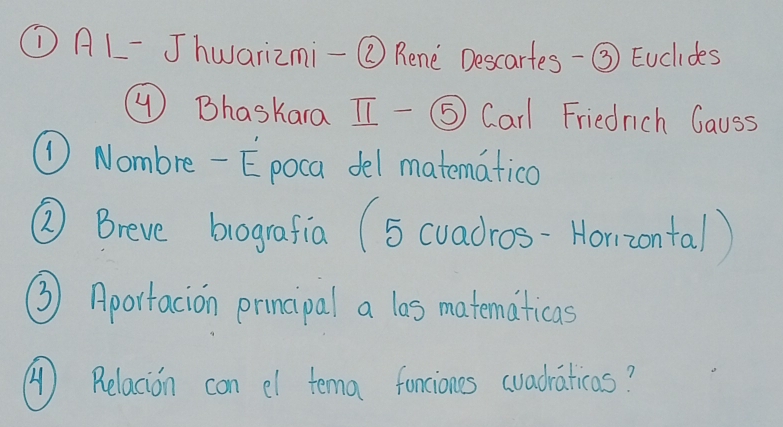 ① AL- Jhwarizmi - ② René Descartes - ③ Euclides
④ Bhaskara II - ⑤ Carl Friedrich Gauss
① Nombre - Época del matemático
② Breve biografía (5 cuadros - Horizontal)
③ Aportación principal a las matemáticas
④ Relación con el tema funciones cuadráticas?